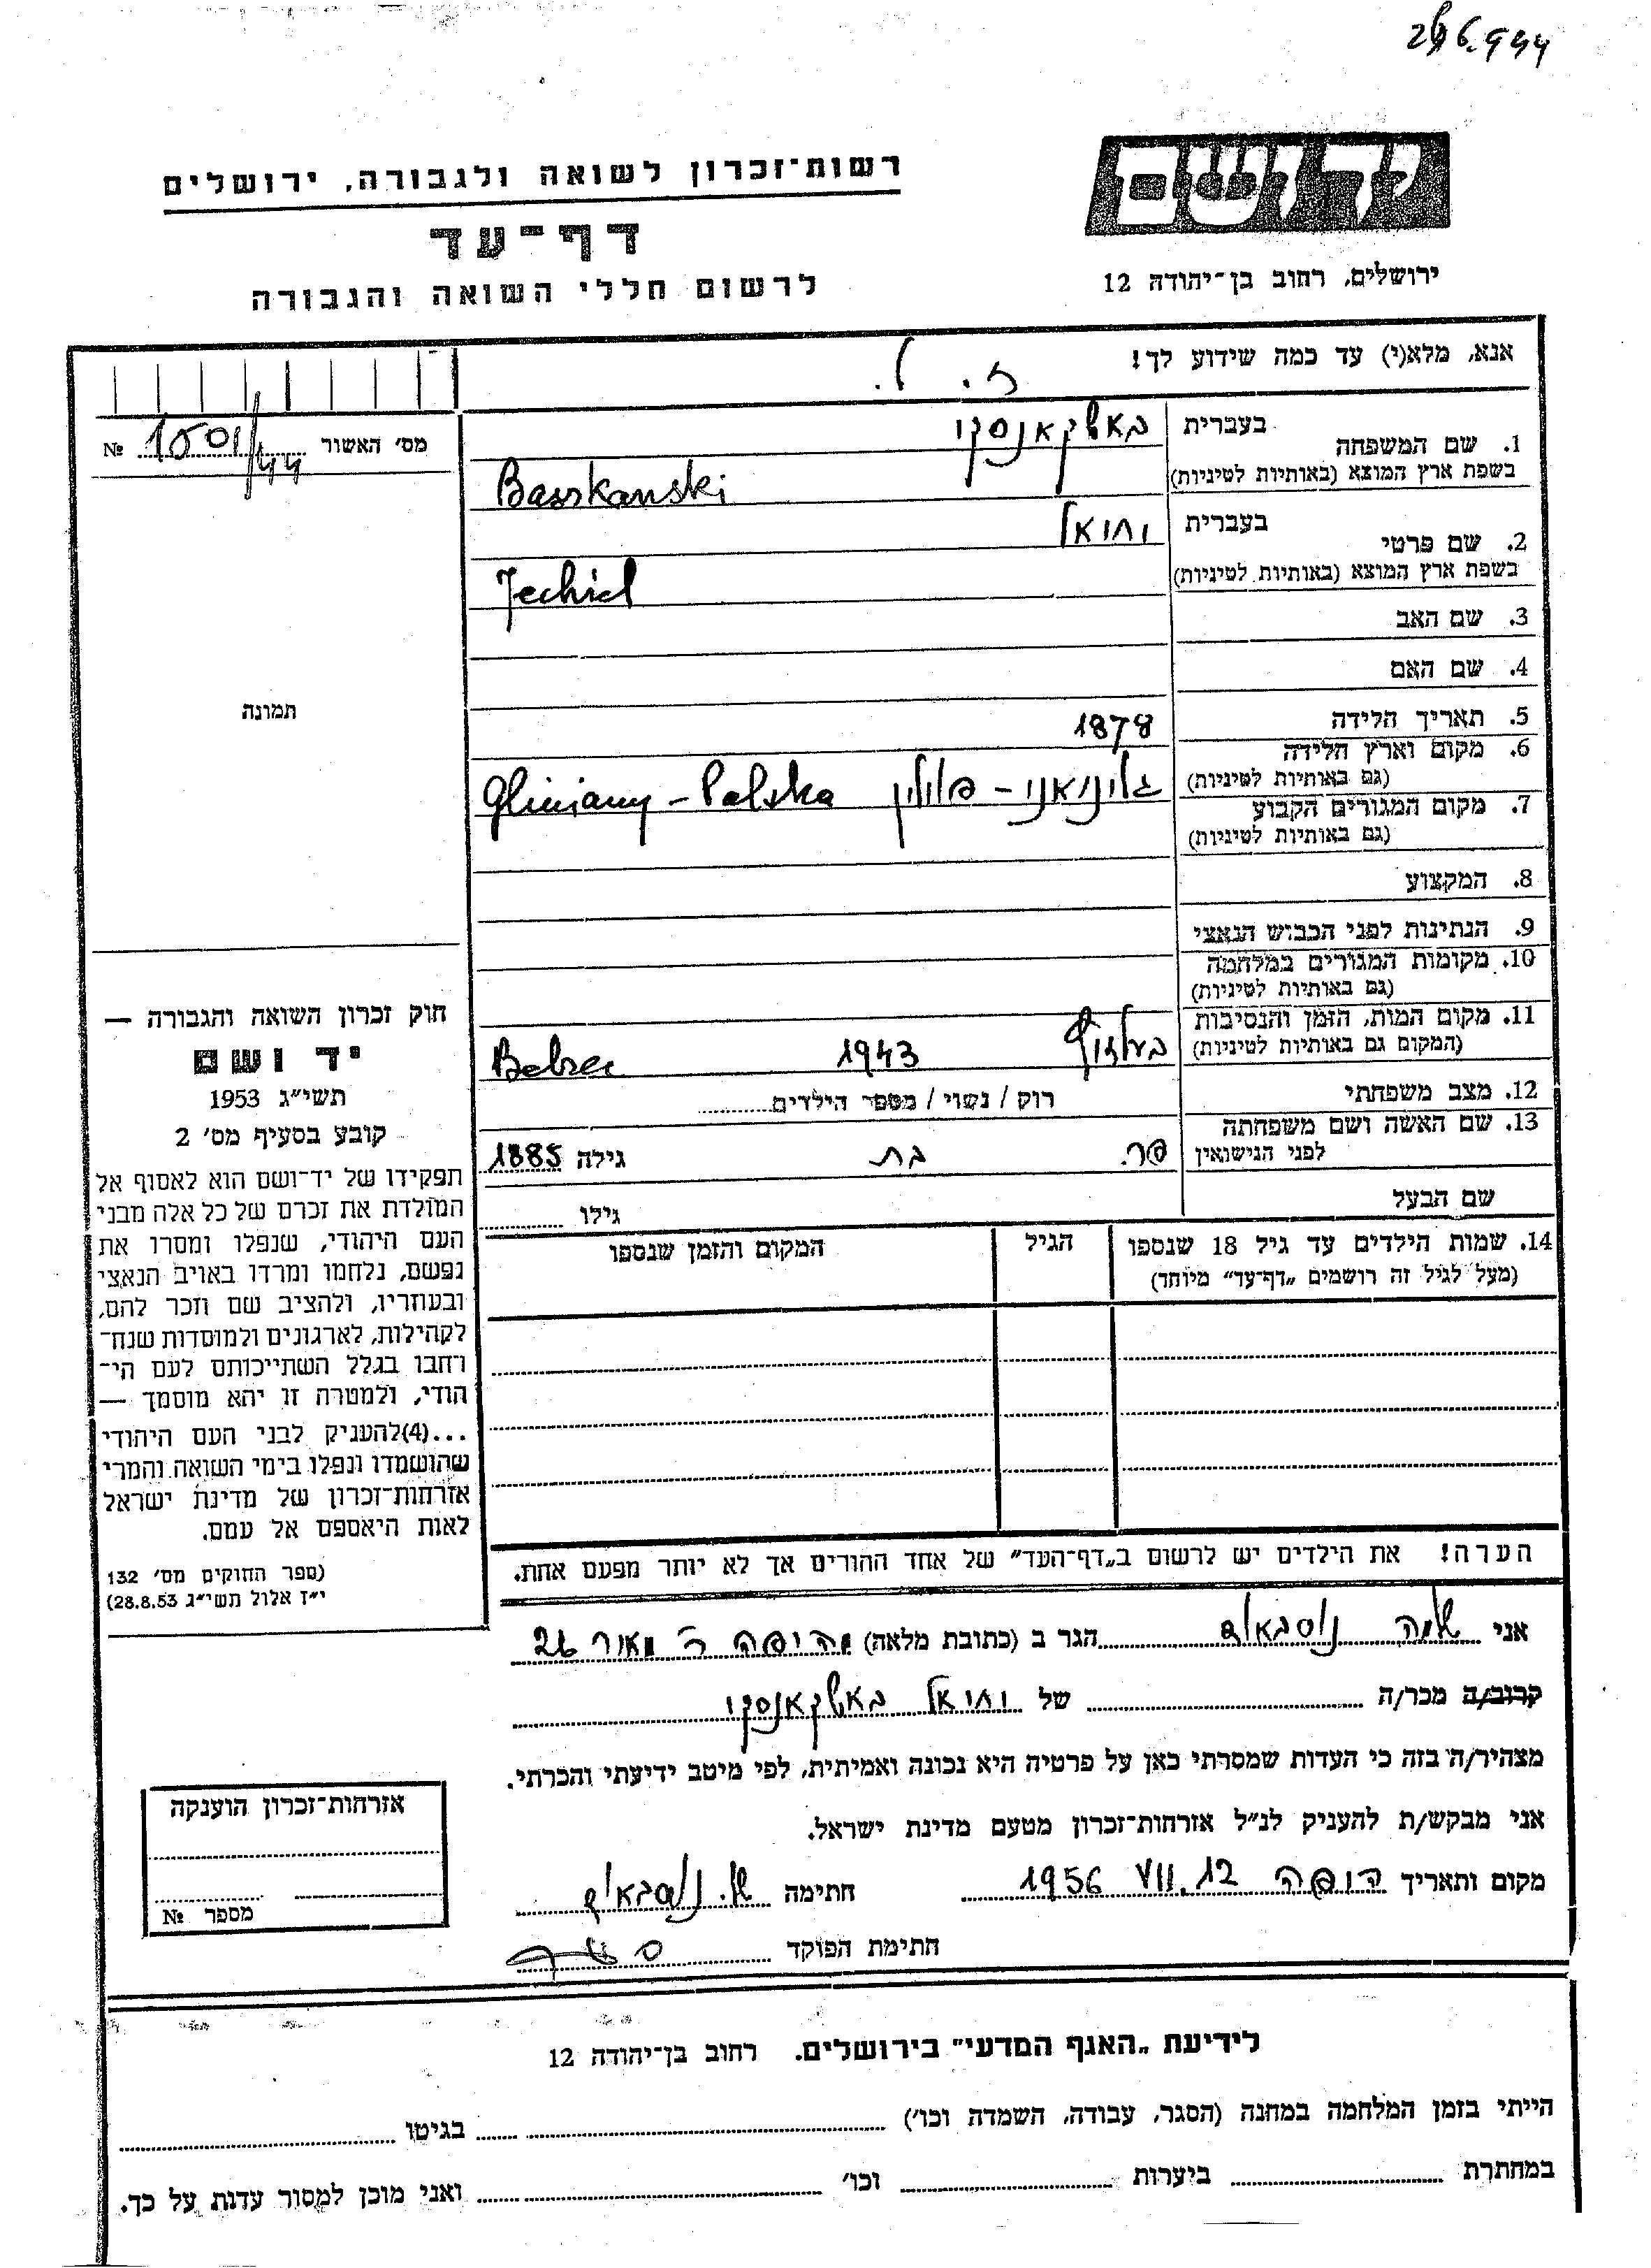 יד ושם
ירושלים, רחוב בן־יהודה 12
רשות־זכרון לשואה ולגבורה, ירושלים
דף־עד
לרשום חללי השואה והגבורה
אנא, מלא(י) עד כמה שידוע לך!
מס׳ האשור № 1501/44
1. שם המשפחה בעברית באשקאנסקי
בשפת ארץ המוצא (באותיות לטיניות) Baszkanski
2. שם פרטי בעברית יחיאל
בשפת ארץ המוצא (באותיות לטיניות) Jechiel
3. שם האב
4. שם האם
5. תאריך הלידה 1878
6. מקום וארץ הלידה
(גם באותיות לטיניות) גליניאני - פולין Gliniany - Polska
7. מקום המגורים הקבוע
(גם באותיות לטיניות)
8. המקצוע
9. הנתינות לפני הכבוש הנאצי
10. מקומות המגורים במלחמה
(גם באותיות לטיניות)
11. מקום המות, הזמן והנסיבות
(המקום גם באותיות לטיניות) 1943 Belzec
12. מצב משפחתי רוק / נשוי / מספר הילדים
13. שם האשה ושם משפחתה
לפני הנישואין בת גילה 1885
שם הבעל גילו
14. שמות הילדים עד גיל 18 שנספו הגיל המקום והזמן שנספו
(מעל לגיל זה רושמים „דף־עד” מיוחד)
הערה! את הילדים יש לרשום ב„דף־העד” של אחד ההורים אך לא יותר מפעם אחת.
תמונה
חוק זכרון השואה והגבורה —
יד ושם
תשי״ג 1953
קובע בסעיף מס׳ 2
תפקידו של יד־ושם הוא לאסוף אל
המולדת את זכרם של כל אלה מבני
העם היהודי, שנפלו ומסרו את
נפשם, נלחמו ומרדו באויב הנאצי
ובעוזריו, ולהציב שם וזכר להם,
לקהילות, לארגונים ולמוסדות שנח־
רחבו בגלל השתייכותם לעם הי־
הודי, ולמטרה זו יהא מוסמך —
...(4)להעניק לבני העם היהודי
שהושמדו ונפלו בימי השואה והמרי
אזרחות־זכרון של מדינת ישראל
לאות היאספם אל עמם.
(ספר החוקים מס׳ 132
י״ז אלול תשי״ג 28.8.53)
אני שלמה נוסבאום הגר ב (כתובת מלאה) חיפה 26
קרוב/ה מכר/ה של יחיאל באשקאנסקי
מצהיר/ה בזה כי העדות שמסרתי כאן על פרטיה היא נכונה ואמיתית, לפי מיטב ידיעתי והכרתי.
אני מבקש/ת להעניק לנ״ל אזרחות־זכרון מטעם מדינת ישראל.
מקום ותאריך חיפה 12.VII 1956 חתימה ש. נוסבאום
חתימת הפוקד
אזרחות־זכרון הוענקה
מספר №
לידיעת „האגף המדעי” בירושלים. רחוב בן־יהודה 12
הייתי בזמן המלחמה במחנה (הסגר, עבודה, השמדה וכו׳) בגיטו
במחתרת ביערות וכו׳ ואני מוכן למסור עדות על כך.